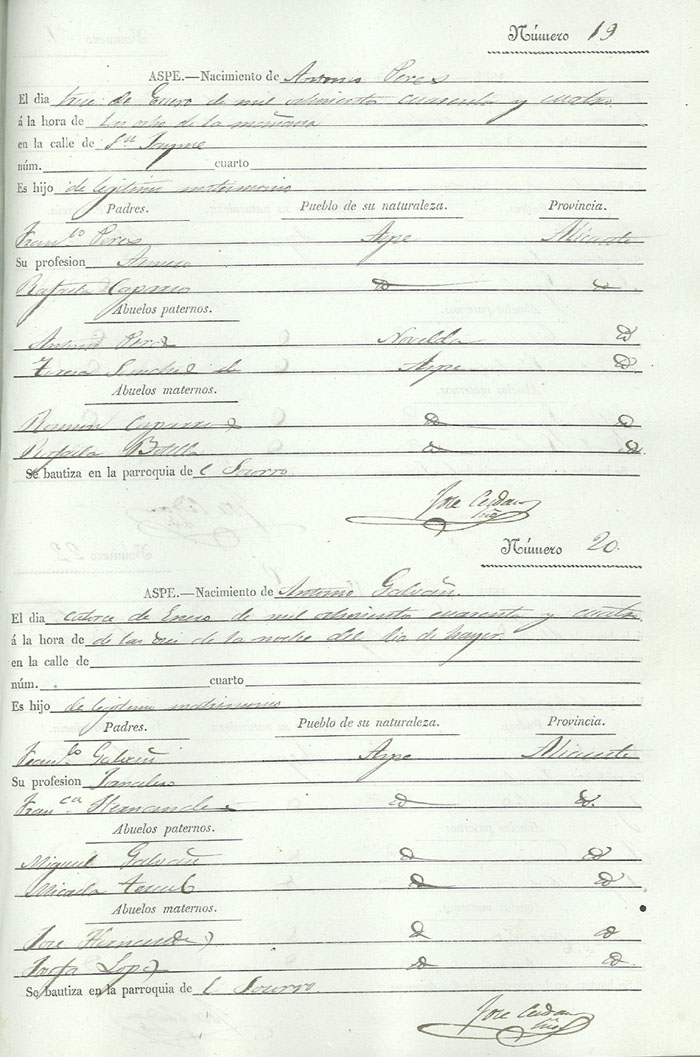 Número 19
ASPE.—Nacimiento de Antonio Peres
El dia trece de Enero de mil ochocientos cuarenta y cuatro
á la hora de las ocho de la mañana
en la calle de Sn Jayme
núm. cuarto
Es hijo de legitimo matrimonio
Padres. Pueblo de su naturaleza. Provincia.
Franco Peres Aspe Alicante
Su profesion
Rafaela Caparros id id
Abuelos paternos.
Antonio Peres Novelda id
Teresa Sanches de Aspe id
Abuelos maternos.
Ramon Caparros id id
Rafaela Botella id id
Se bautiza en la parroquia de l Socorro
Jose Cerdan
Número 20.
ASPE.—Nacimiento de Antonio Galvañ
El dia catorce de Enero de mil ochocientos cuarenta y cuatro
á la hora de de las dies de la noche del dia de hayer
en la calle de
núm. cuarto
Es hijo de legitimo matrimonio
Padres. Pueblo de su naturaleza. Provincia.
Franco Galvañ Aspe Alicante
Su profesion
Franca Hernandes id id
Abuelos paternos.
Miguel Galvañ id id
Micaela Teruel id id
Abuelos maternos.
Jose Hernandes id id
Josefa Lopez id id
Se bautiza en la parroquia de l Socorro
Jose Cerdan